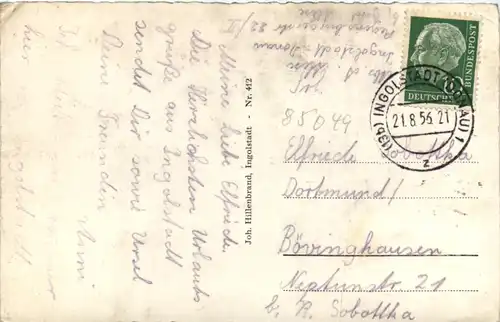 Meine liebe Elfriede,
Die herzlichsten Urlaubs
grüße aus Ingolstadt
sendet Dir sowie Ursel
Deine Freundin
Joh. Hillenbrand, Ingolstadt - Nr. 412
DEUTSCHE BUNDESPOST
(13b) INGOLSTADT (DONAU) 1
21.8.56.21
z
Ingolstadt/Donau
85049
Elfriede Sobottka
Dortmund/
Bövinghausen
Neptunstr. 21
b. R. Sobottka